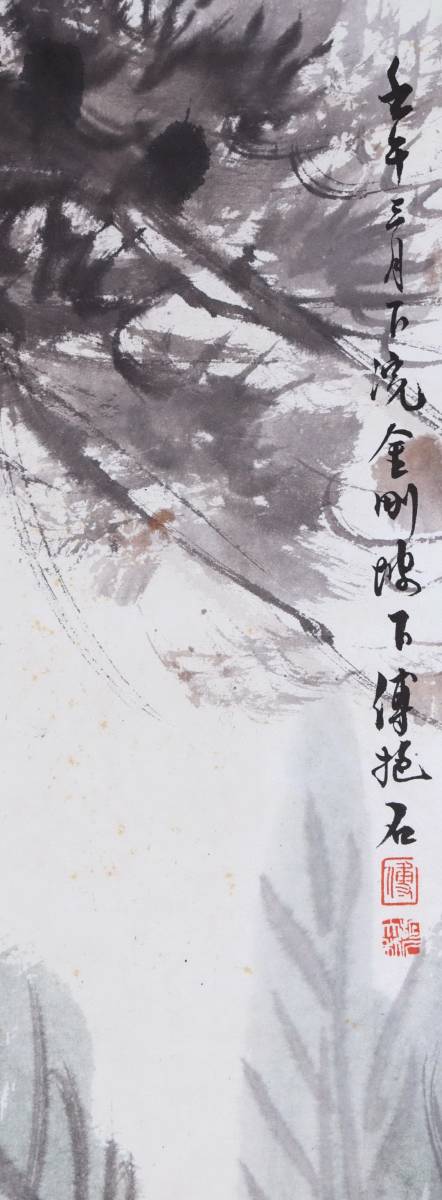 壬午三月下浣金刚坡下傅抱石
傅